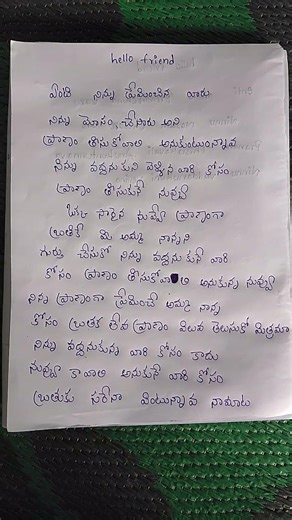 hello friend
ఏంటి నిన్ను ప్రేమించిన వారు
నిన్ను మోసం చేసారు అని
ప్రాణం తీసుకోవాలి అనుకుంటున్నావ
నిన్ను వద్దనుకుని వెళ్ళిన వారి కోసం
ప్రాణం తీసుకునే నువ్వు
ఒక్క సారైన నువ్వే ప్రాణంగా
బ్రతికే మీ అమ్మ నాన్నని
గుర్తు చేసుకో నిన్ను వద్దనుకునే వారి
కోసం ప్రాణం తీసుకోవాలి అనుకున్న నువ్వు
నిన్న ప్రాణంగా ప్రేమించే అమ్మ నాన్న
కోసం బ్రతక లేవ ప్రాణం విలువ తెలుసుకో మిత్రమా
నిన్ను వద్దనుకున్న వారి కోసం కాదు
నువ్వు కావాలి అనుకునే వారి కోసం
బ్రతుకు సరేనా వింటున్నావ నామాట